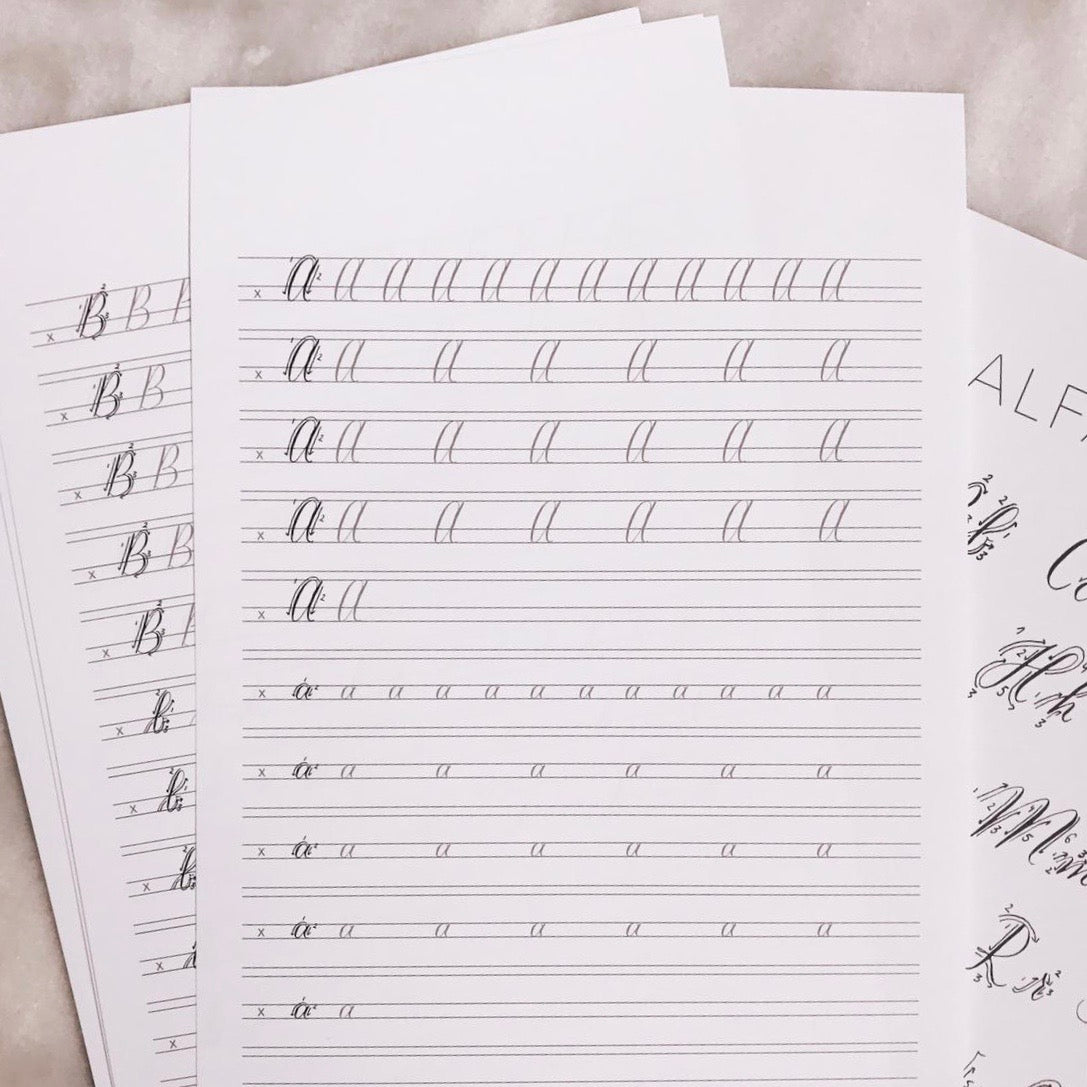 x B B B
x B B
x B B
x B B
x B B
x b
x b
x b
x
x
x A A A A A A A A A A A A
x A A A A A A A
x A A A A A A A
x A A A A A A A
x A A
x a a a a a a a a a a a a
x a a a a a a a
x a a a a a a a
x a a a a a a a
x a a
ALF
b C
H h
M m
R r